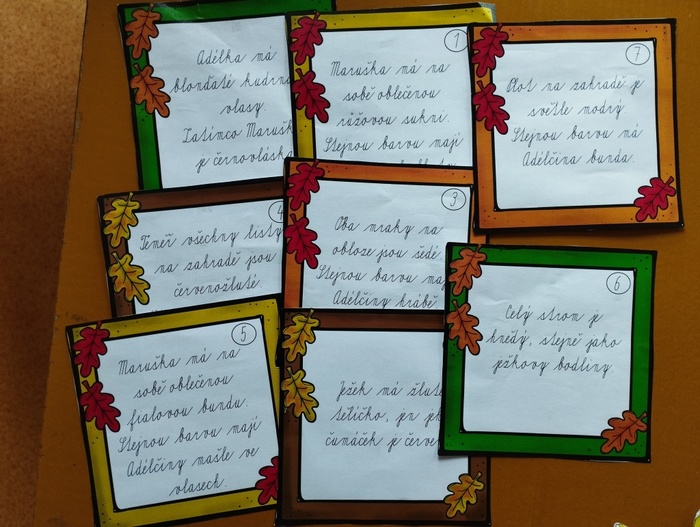 Adélka má
blonďaté kudrn
vlasy
Zatímco Marušk
je černovláska
1
Maruška má na
sobě oblečenou
růžovou sukni.
Stejnou barvu mají
7
Plot na zahradě je
světle modrý
Stejnou barvu má
Adélčina bunda.
4
Téměř všechny listy
na zahradě jsou
červenožluté.
3
Oba mraky na
obloze jsou šedé
Stejnou barvu maj
Adélčiny hrábě.
6
Celý strom je
hnědý, stejně jako
ježkovy bodliny.
5
Maruška má na
sobě oblečenou
fialovou bundu.
Stejnou barvu mají
Adélčiny mašle ve
vlasech.
Ježek má žluté
tělíčko, jen je
čumáček je červen